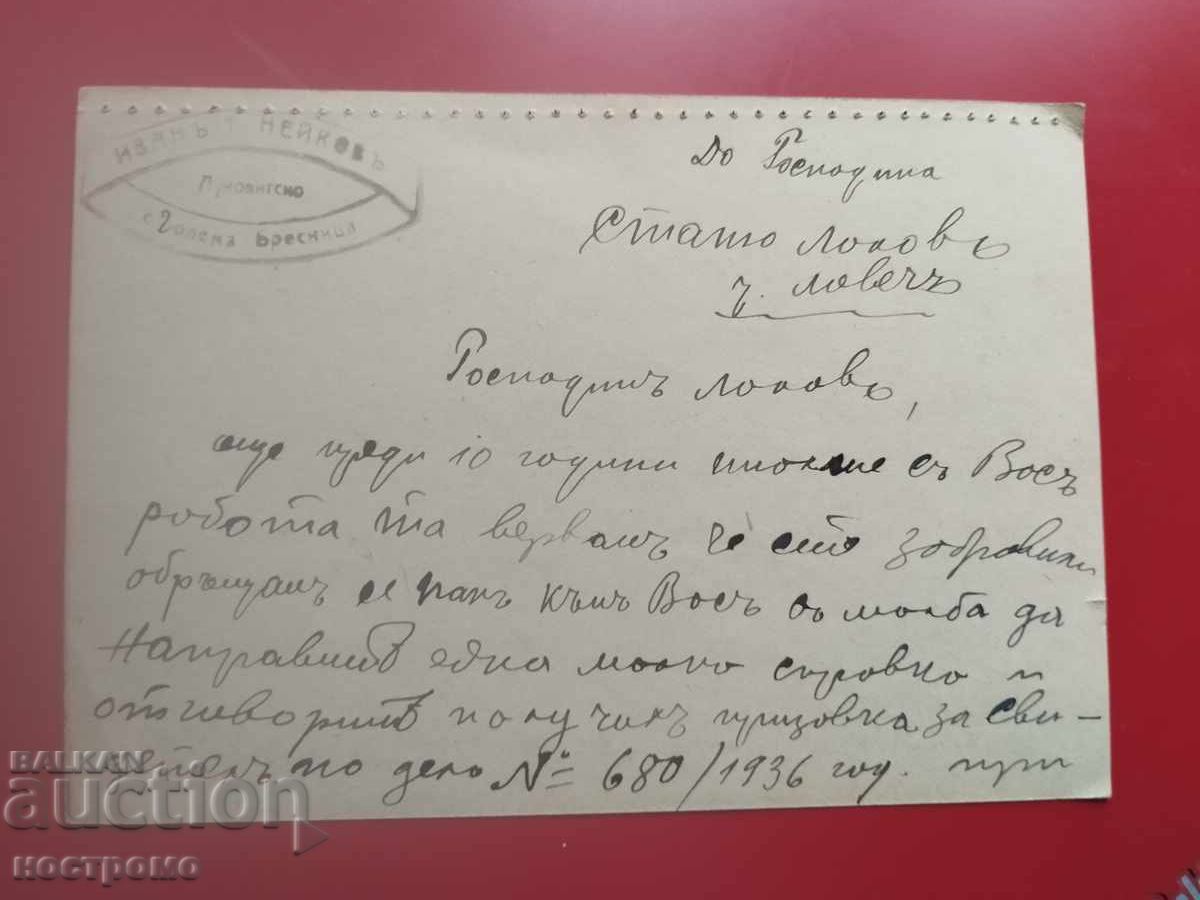 ИВАНЪ НЕЙКОВЪ
Луковитско
с. Голема Бресница
До Господина
Стато Лоловъ
гр. Ловечъ
Господинъ Лоловъ,
още преди 10 години имахме съ Васъ
работа та вервамъ че сте забравили
обръщамъ се пакъ къмъ Васъ съ молба да
направите една малка справка и
отговорите получихъ призовка за сви-
детель по дело № 680/1936 год. при
BALKAN
auction
костромо